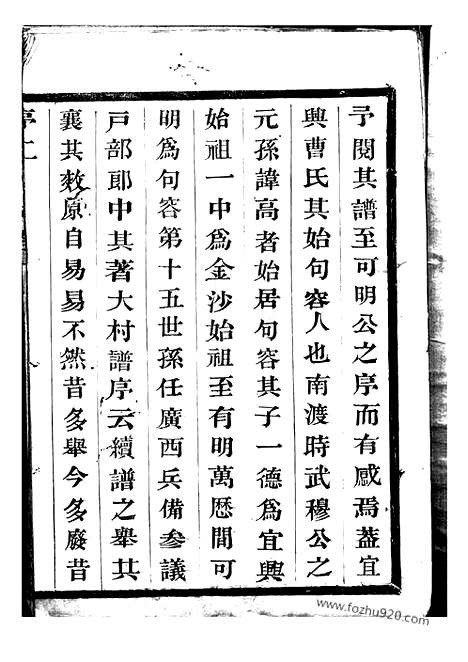 予閱其譜至可明公之序而有感焉蓋宜
興曹氏其始句容人也南渡時武穆公之
元孫諱高者始居句容其子一德爲宜興
始祖一中爲金沙始祖至有明萬歷間可
明爲句容第十五世孫任廣西兵備參議
戸部郎中其著大村譜序云續譜之舉其
襄其敘原自易易不然昔多舉今多廢昔
序二
www.fozhu920.com